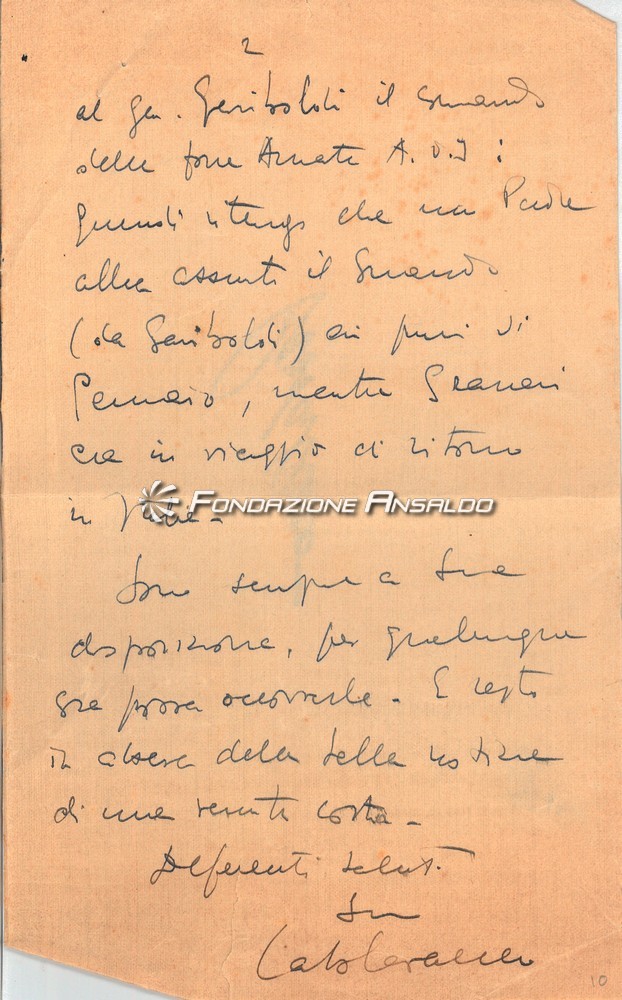 2
al Gen. Gariboldi il Comando
delle forze Armate A.O.I :
quindi ritengo che suo Padre
abbia assunto il Comando
(da Gariboldi) ai primi di
Gennaio, mentre Graziani
era in viaggio di ritorno
in Italia -
FONDAZIONE ANSALDO
Sono sempre a Sua
disposizione, per qualunque
cosa possa occorrerle. E resto
in attesa della bella notizia
di una venuta costà -
Deferenti saluti
Suo
10